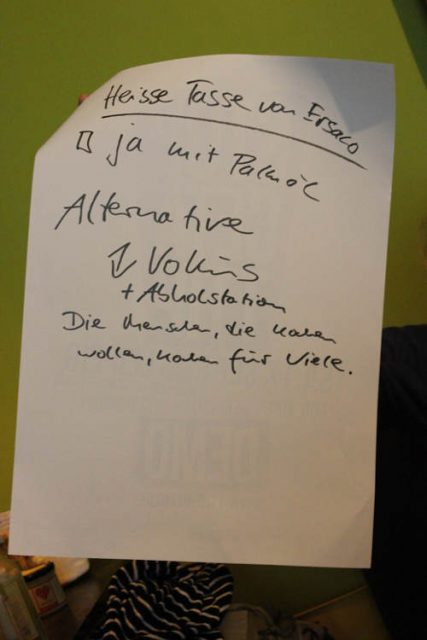 Heisse Tasse von Ersaco
ja mit Palmöl
Alternative
Vokis
+ Abholstation
Die Menschen, die kochen
wollen, kochen für Viele.
DEMO